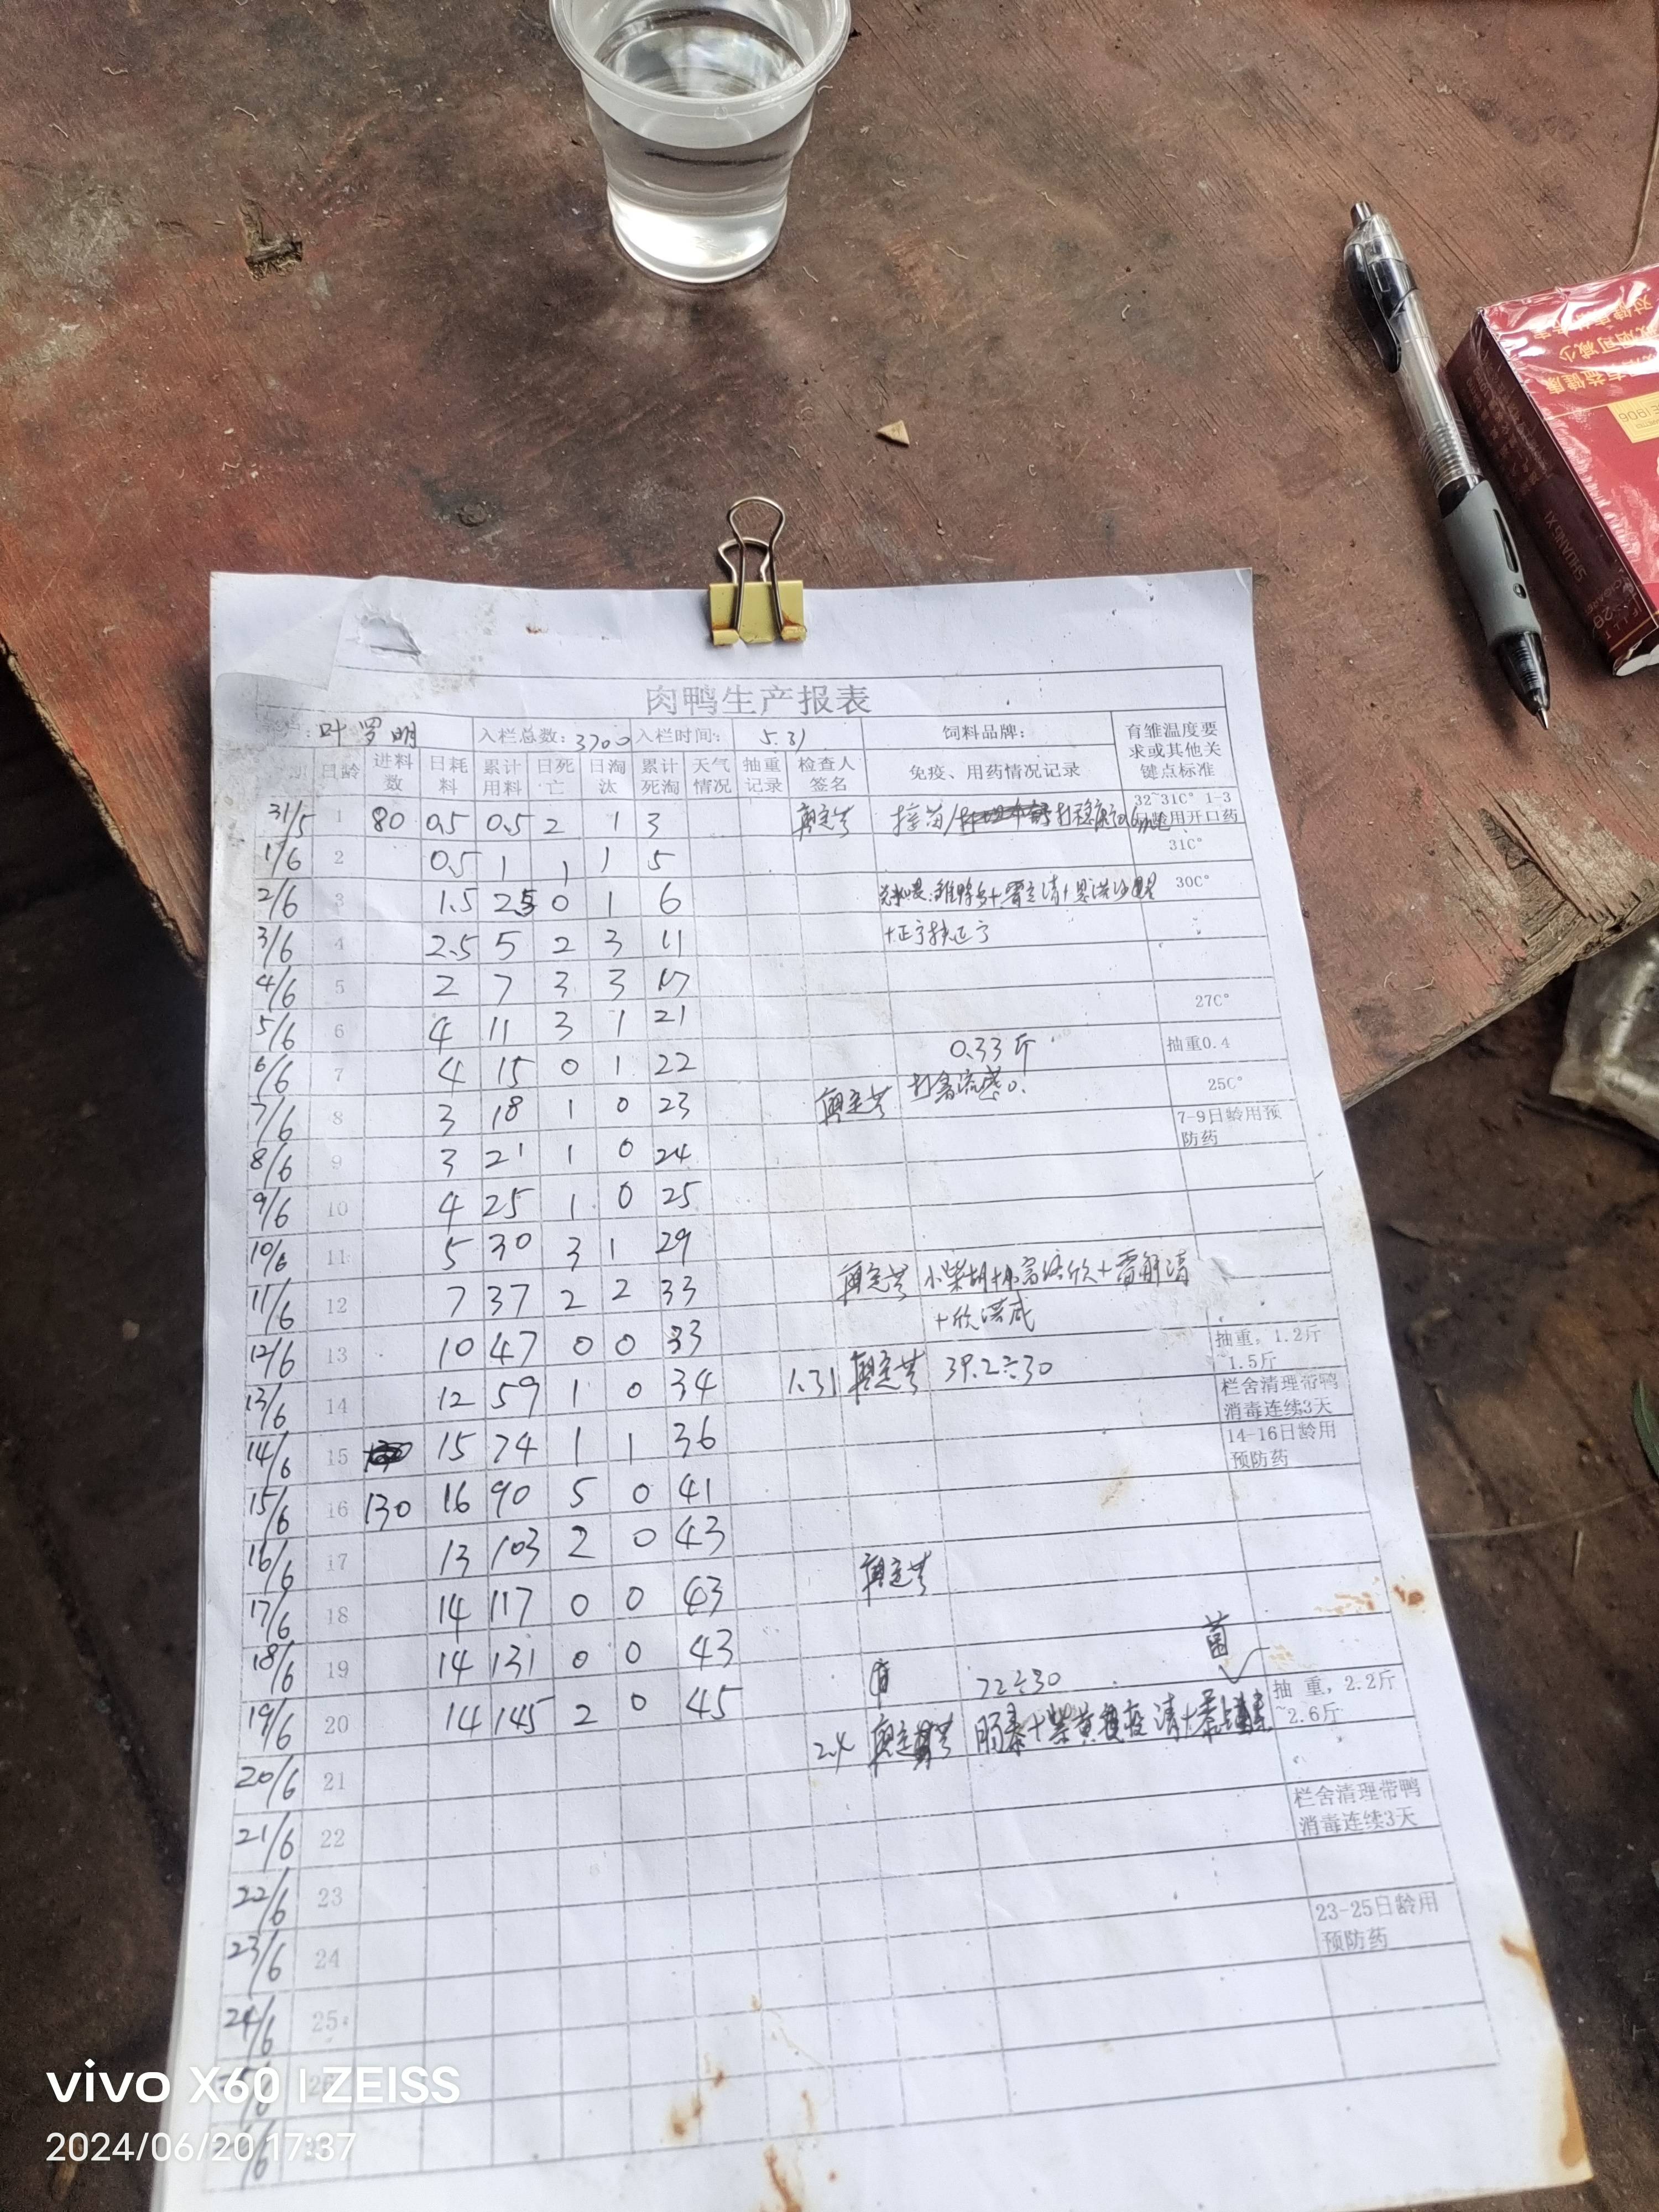 肉鸭生产报表
叶罗明 入栏总数: 3700 入栏时间: 5.31 饲料品牌: 育雏温度要求或其他关键点标准
日龄 进料数 日耗料 累计用料 日死亡 日淘汰 累计死淘 天气情况 抽重记录 检查人签名 免疫、用药情况记录
31/5 1 80 0.5 0.5 2 1 3 接苗/ 32~31C° 1-3日龄用开口药
1/6 2 0.5 1 1 1 5 31C°
2/6 3 1.5 2.5 0 1 6 30C°
3/6 4 2.5 5 2 3 11
4/6 5 2 7 3 3 17
5/6 6 4 11 3 1 21 27C°
6/6 7 4 15 0 1 22 0.33斤 抽重0.4
7/6 8 3 18 1 0 23 打禽流感 25C°
8/6 9 3 21 1 0 24 7-9日龄用预防药
9/6 10 4 25 1 0 25
10/6 11 5 30 3 1 29
11/6 12 7 37 2 2 33 小柴胡+
12/6 13 10 47 0 0 33
13/6 14 12 59 1 0 34 1.31 39.2÷30 抽重，1.2斤~1.5斤
14/6 15 15 74 1 1 36 栏舍清理带鸭消毒连续3天
15/6 16 130 16 90 5 0 41 14-16日龄用预防药
16/6 17 13 103 2 0 43
17/6 18 14 117 0 0 43
18/6 19 14 131 0 0 43 菌
19/6 20 14 145 2 0 45 72÷30 抽 重，2.2斤~2.6斤
20/6 21 2.4 肠泰+柴黄
21/6 22 栏舍清理带鸭消毒连续3天
22/6 23
23/6 24 23-25日龄用预防药
24/6 25
26
vivo X60 | ZEISS
2024/06/20 17:37